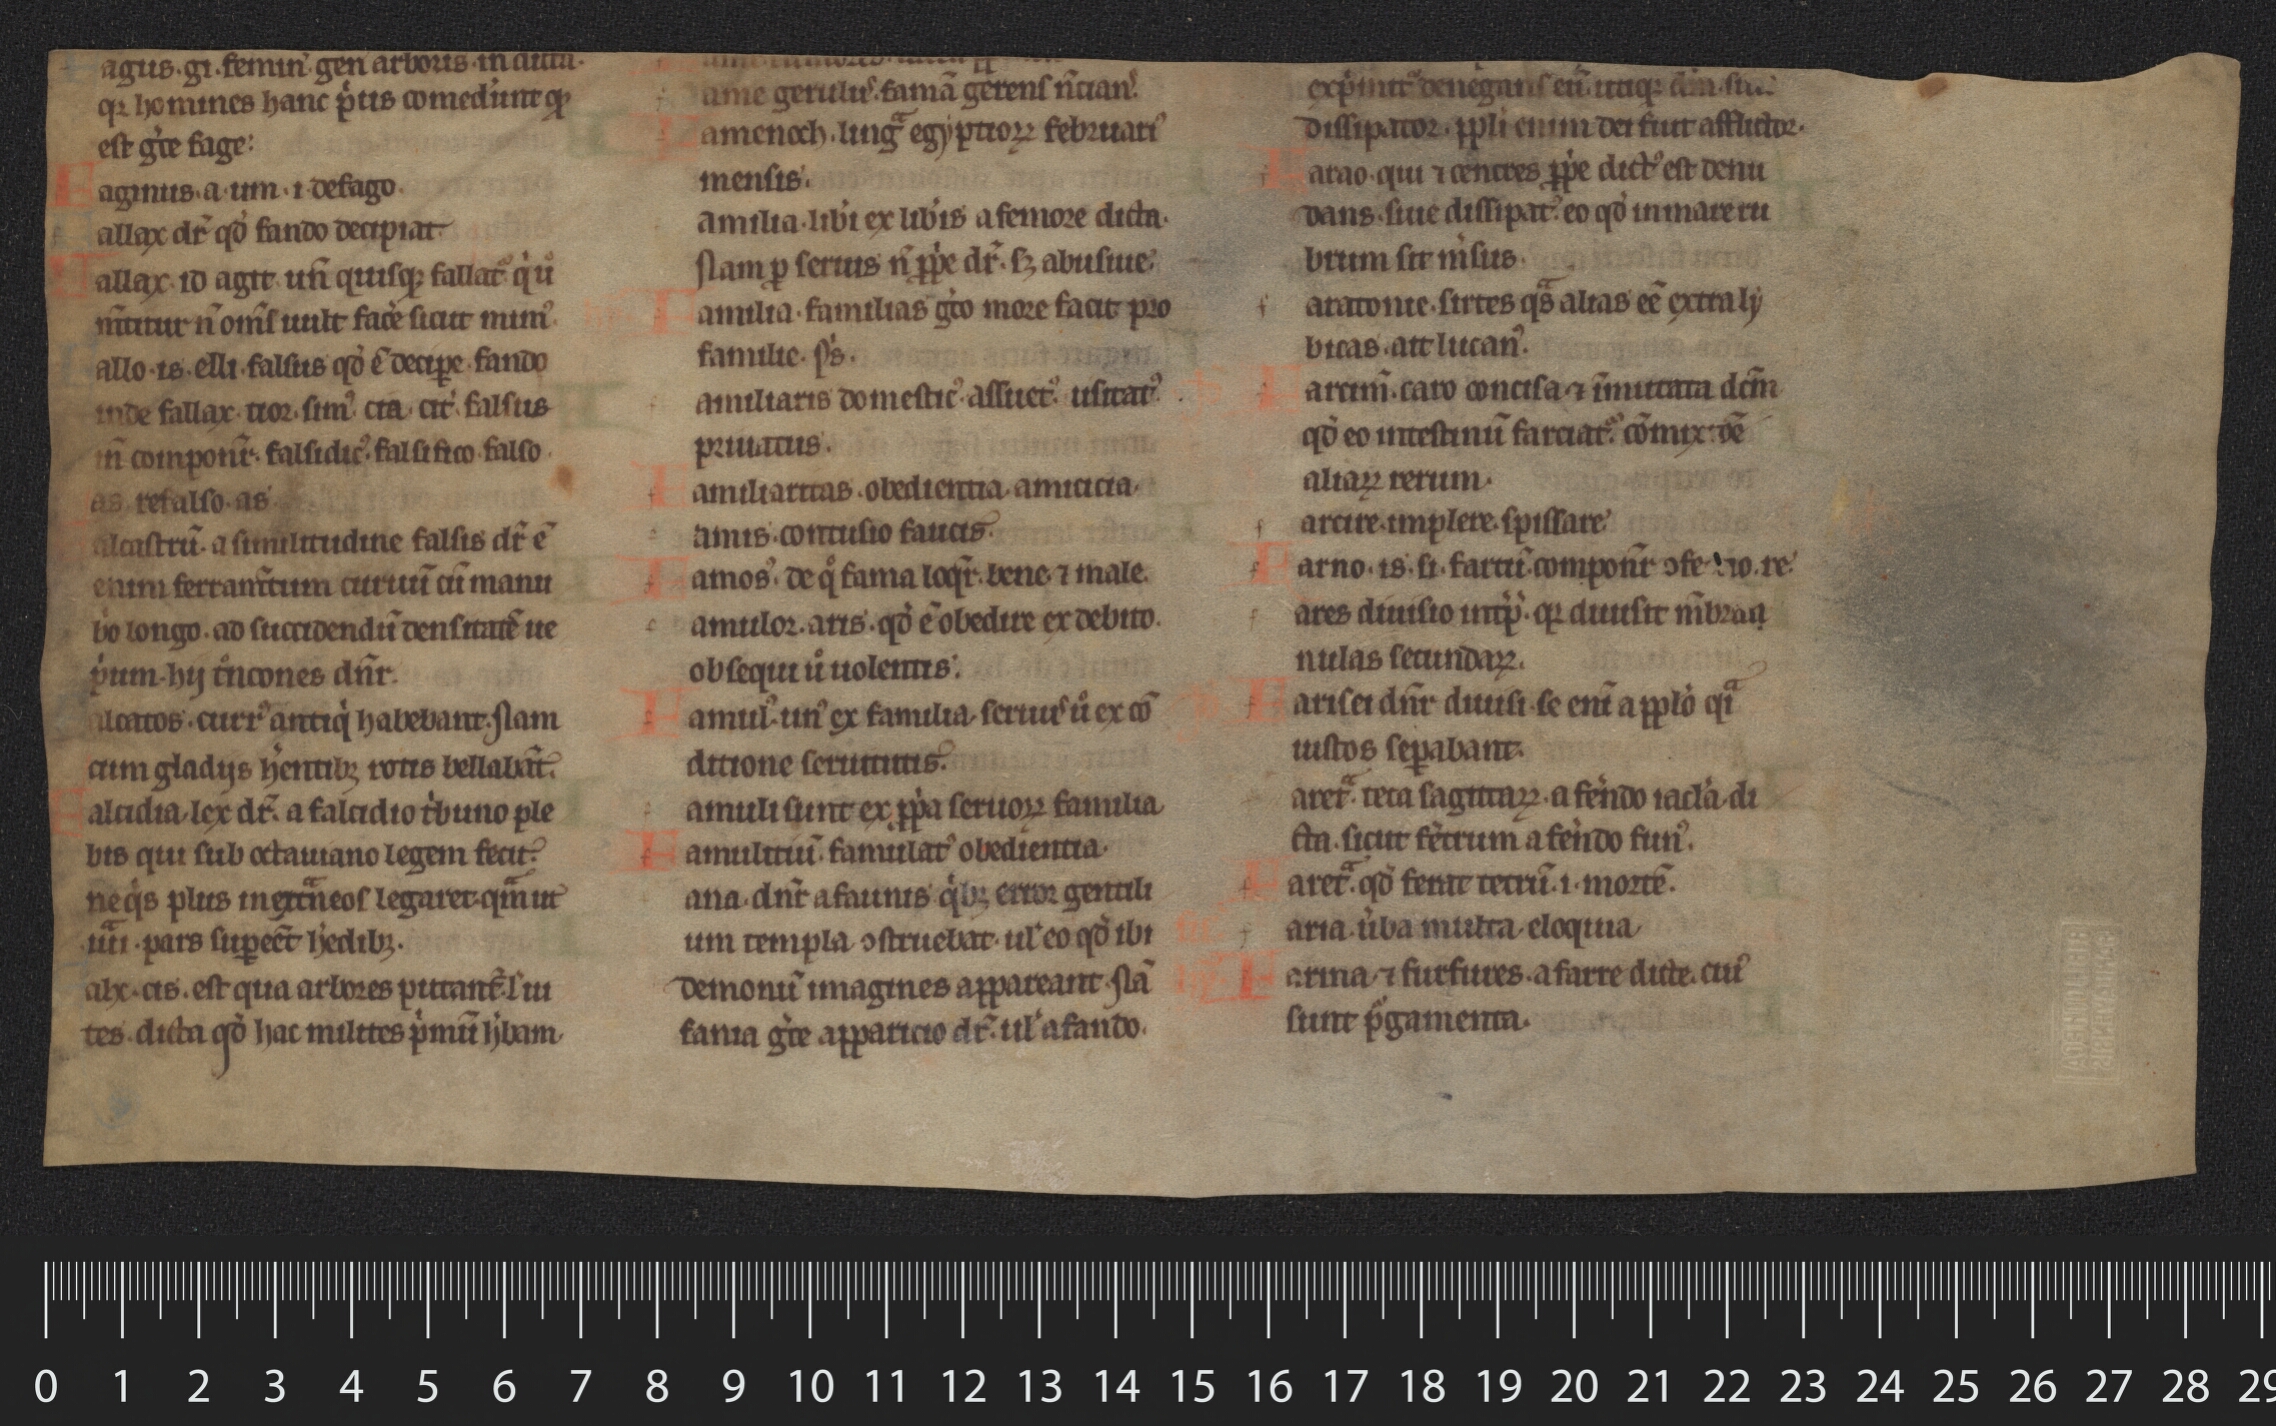 agus. gi. femin̄. gen̄ arboris. in dicta.
qꝛ homines hanc p̓us comeder̄unt qd̓
est gͥce fage:
F aginus. a. um. i defago
F allax dr̄ qđ fando decipiat
F allax. id agit. un̄ quisqꝫ fallat᷒. qͥ u̓o
m̄titur n̄ om̄s uult facē sicut mim᷒.
F allo. is. elli. falsus qđ ē decipe. fando
inde fallax. cior. sim᷒. cia. cit̓. falsus
in̄ componr̄. falsidic᷒. falsifico. falso
as. refalso. as
F alcastrū. a similitudine falsis dr̄ ē
enim ferram̄tum curuū cū manu
b̓o longo. ad succidendū densitatē ue
p̓um. hij r̓ucones dn̄r.
F alcatos. curr᷒ antiqͥ habebant. ꝗam
cum gladijs h̓entibꝫ rotis bellabāt.
F alcidia. lex dr̄. a falcidio tͥbuno ple
bis qui sub octauiano legem fecit.
ne qͥs plus in extͣneos legaret. qͣm ut
.iiiͣi. pars supeēt h̓edibꝫ.
alx. cis. est qua arbores putant̄. l̓ ui
tes. dicta qđ hac milites p̓mū h̓bam
ame gerulus. famā gerens n̄cian᷒.
F amenoth. lingͣ egyptioꝝ februari᷒
mensis.
amilia. lib̓i ex lib̓is a femore dicta.
Nam ꝓ seruis n̄ ꝓpͥe dr̄. sꝫ abusiue.
F amilia. familias gͥco more facit pro
familie. p̓s.
amiliaris domestic᷒. assuet᷒. usitat᷒.
priuatus.
F amiliaritas. obedientia. amicicia.
amis. contusio faucis.
F amos᷒. de qͦ fama loqr̄. bene. ⁊ male.
amulor. aris. qđ ē obedire ex debito.
obsequi u̓ uolentis.
F amul᷒. un᷒ ex familia. seruus u̓ ex cō
ditione seruitutis.
amuli sunt ex ꝓpͥa seruoꝝ familia
F amulitiū. famulat᷒ obedientia.
ana. dn̄r a faunis qͥbꝫ error gentili
um templa ↄstruebat. ul̓ eo qđ ibi
demonū imagines appareant. Nā
fania gͥce apparicio dr̄. ul̓ a fando.
dissipator. ppl̓i enim dei fuit afflictor.
F arao. qui ⁊ cencres ꝓpͥe dict᷒ est denu
dans. siue dissipat᷒. eo qđ in mare ru
brum sit m̓sus.
f aratonie. sirtes qͣs alias eē extra ly
bicas. ait lucan᷒.
F arcim̄. caro concisa. ⁊ īmutata dc̄m
qđ eo intestinū farciat᷒. cōmixtōē
aliaꝝ rerum.
f arcire. implere. spissare.
F arno. is. si. fartū. componr̄
f ares diuisio int̓p̓. qꝛ diuisit m̄brau
nulas secundaꝝ.
F arisei dn̄r diuisi. se eni᷒ a pplo qͣ
iustos sep̱abant.
aretͣ. teca sagittaꝝ. a fēndo iacl̓a. di
cta. sicut fēctrum a fēndo fun᷒.
F aretͣ. qđ ferat tetrū. i. mortē.
f aria. u̓ba multa. eloquia
F arina. ⁊ furfures. a farre dicte. cui᷒
sunt p̓gamenta.
0 1 2 3 4 5 6 7 8 9 10 11 12 13 14 15 16 17 18 19 20 21 22 23 24 25 26 27 28 29